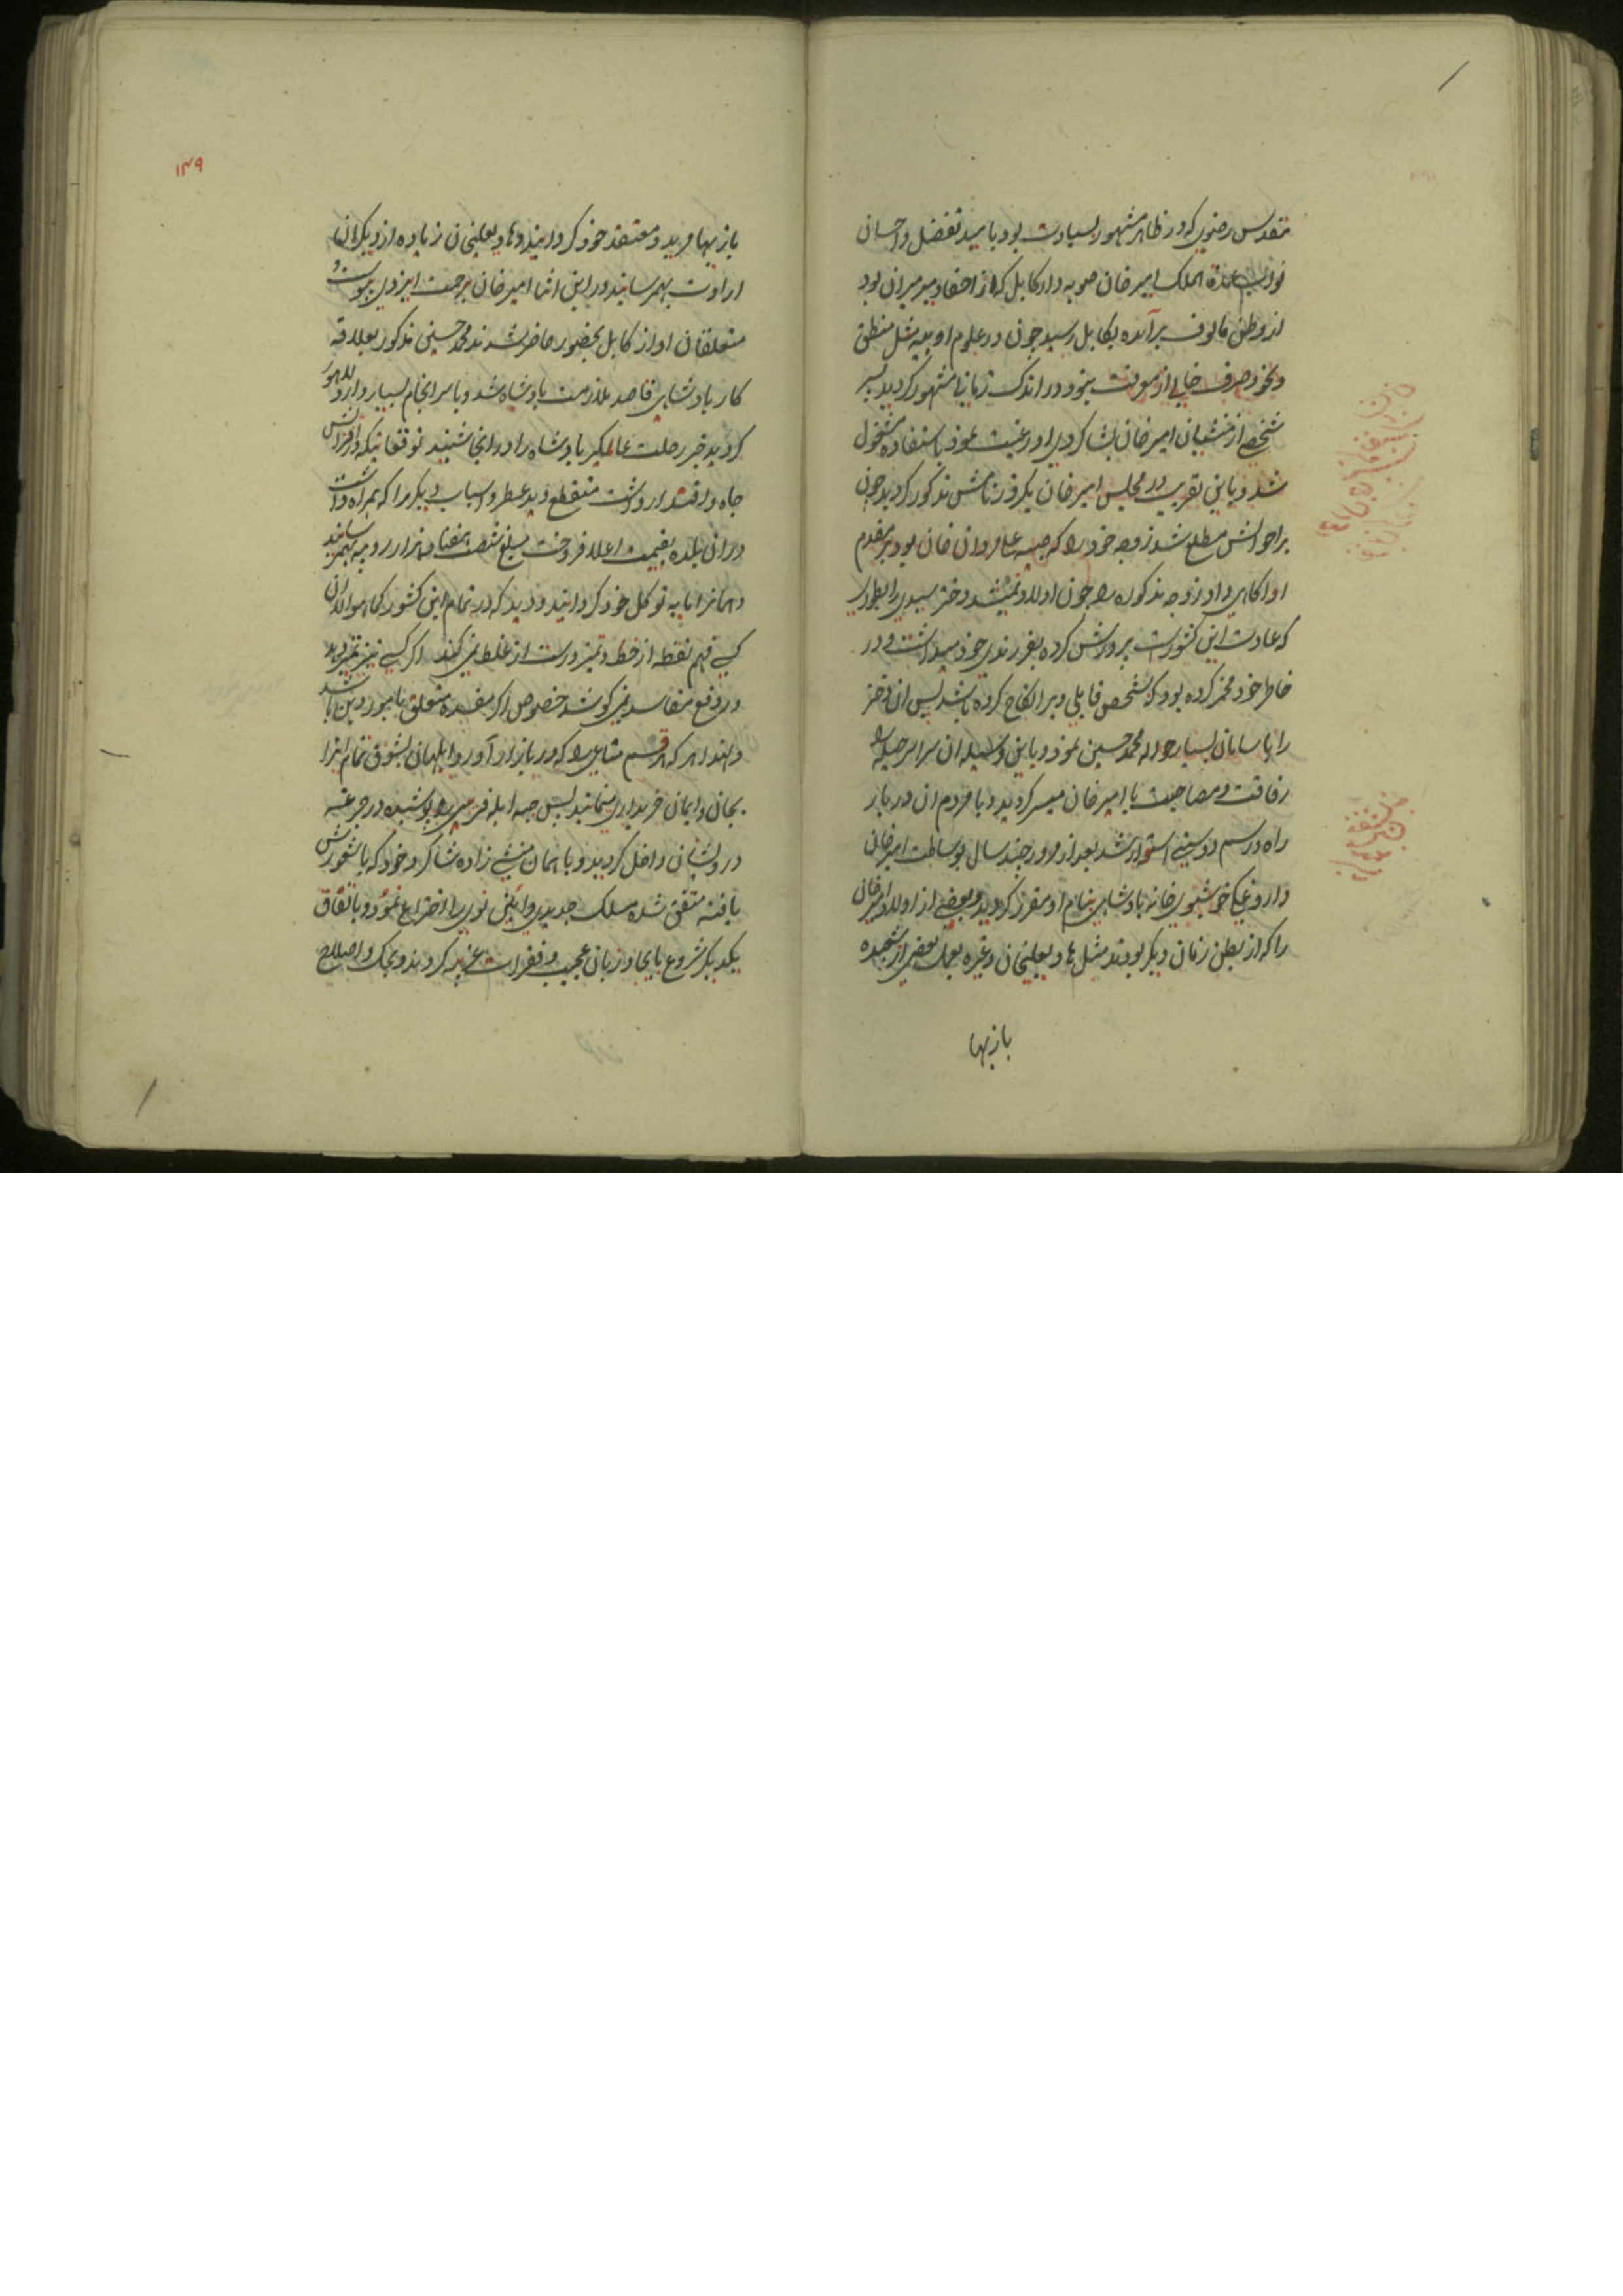 مقدس رضوی که در ظاهر مشهور بسیادت بود بامید تفضل و احسان
نواب عمدة الملک امیر خان صوبه دار کابل که از احفاد میر میران بود
از وطن مالوف برآمده بکابل رسید چون در علوم ادبیه مثل منطق
و نحو و صرف خالی از معرفت نبود در اندک زمانی مشهور گردید پسر
شخصی از منشیان امیر خان بشاکردی او رغبت نموده باستفاده مشغول
شد و باین تقریب در مجلس امیر خان یکروز نامش مذکور گردید چون
بر احوالش مطلع شد زوجه خود را که صبیه علی مردان خان بود بر مقدم
او آگاهی داد زوجه مذکوره را چون اولاد نمیشد دختر سیدی را بطوریکه
که عادت این کشورست پرورش کرده بفرزندی خود میداشت و در
خاطر خود مخمر کرده بود که بشخص قابلی ویرا نکاح کرده باشد پس آن دختر
را با سامان بسیار حواله محمد حسین نمود و باین وسیله آن سراسر حیله را
رفاقت و مصاحبت با امیر خان میسر گردید و با مردم آن دربار
راه و رسم دوستی استوار شد بعد از مرور چند سال بوساطت امیر خان
داروغگی خوشبوی خانه بادشاهی بنام او مقرر گردید و بعضی از اولاد امیر خان
را که از بطن زنان دیگر بودند مثل هادیعلیخان و غیره بعمل بعضی از شعبده
بازیها
۱۴۹
بازیها مرید و معتقد خود گردانید و هادیعلیخان زیاده از دیگران
ارادت بهمرسانید در این اثنا امیر خان برحمت ایزدی پیوست و
متعلقان او از کابل بحضور حاضر شدند محمد حسین مذکور بعلاقه
کار بادشاهی قاصد ملازمت بادشاه شد و با سرانجام بسیار وارد لاهور
گردید خبر رحلت عالمگیر بادشاه را در انجا شنید توقعاتیکه در افزایش
جاه و اقتدار داشت منقطع دید عطر و اسباب دیگر را که همراه داشت
در آن بلده بقیمت اعلا فروخت مبلغ شصت هفتاد هزار روپیه بهمرسانید
و همانرا مایه توکل خود گردانید و دید که در تمام این کشور
کسی فهم نقطه از خط و تمیز درست از غلط نمی کند اگر کسی نیز تمیز دهد
در دفع مفاسد نمی کوشد خصوص اگر مفسده متعلق بامور دین باشد
و لهذا هر که هر قسم متاعی را که در بازار آورد ابلهان بشوق تمام آنرا
بجان و ایمان خریداری مینمایند پس جبه ابله فریبی را پوشیده در جرگه
درویشان داخل گردید و با همان منشی زاده شاگرد خود که با شعورش
یافته متفق شده مسلک جدیدی و آئین نوی را اختراع نمود و باتفاق
یکدیگر شروع بایجاد زبان عجیب و فقرات غریبه کردند و بحک و اصلاح